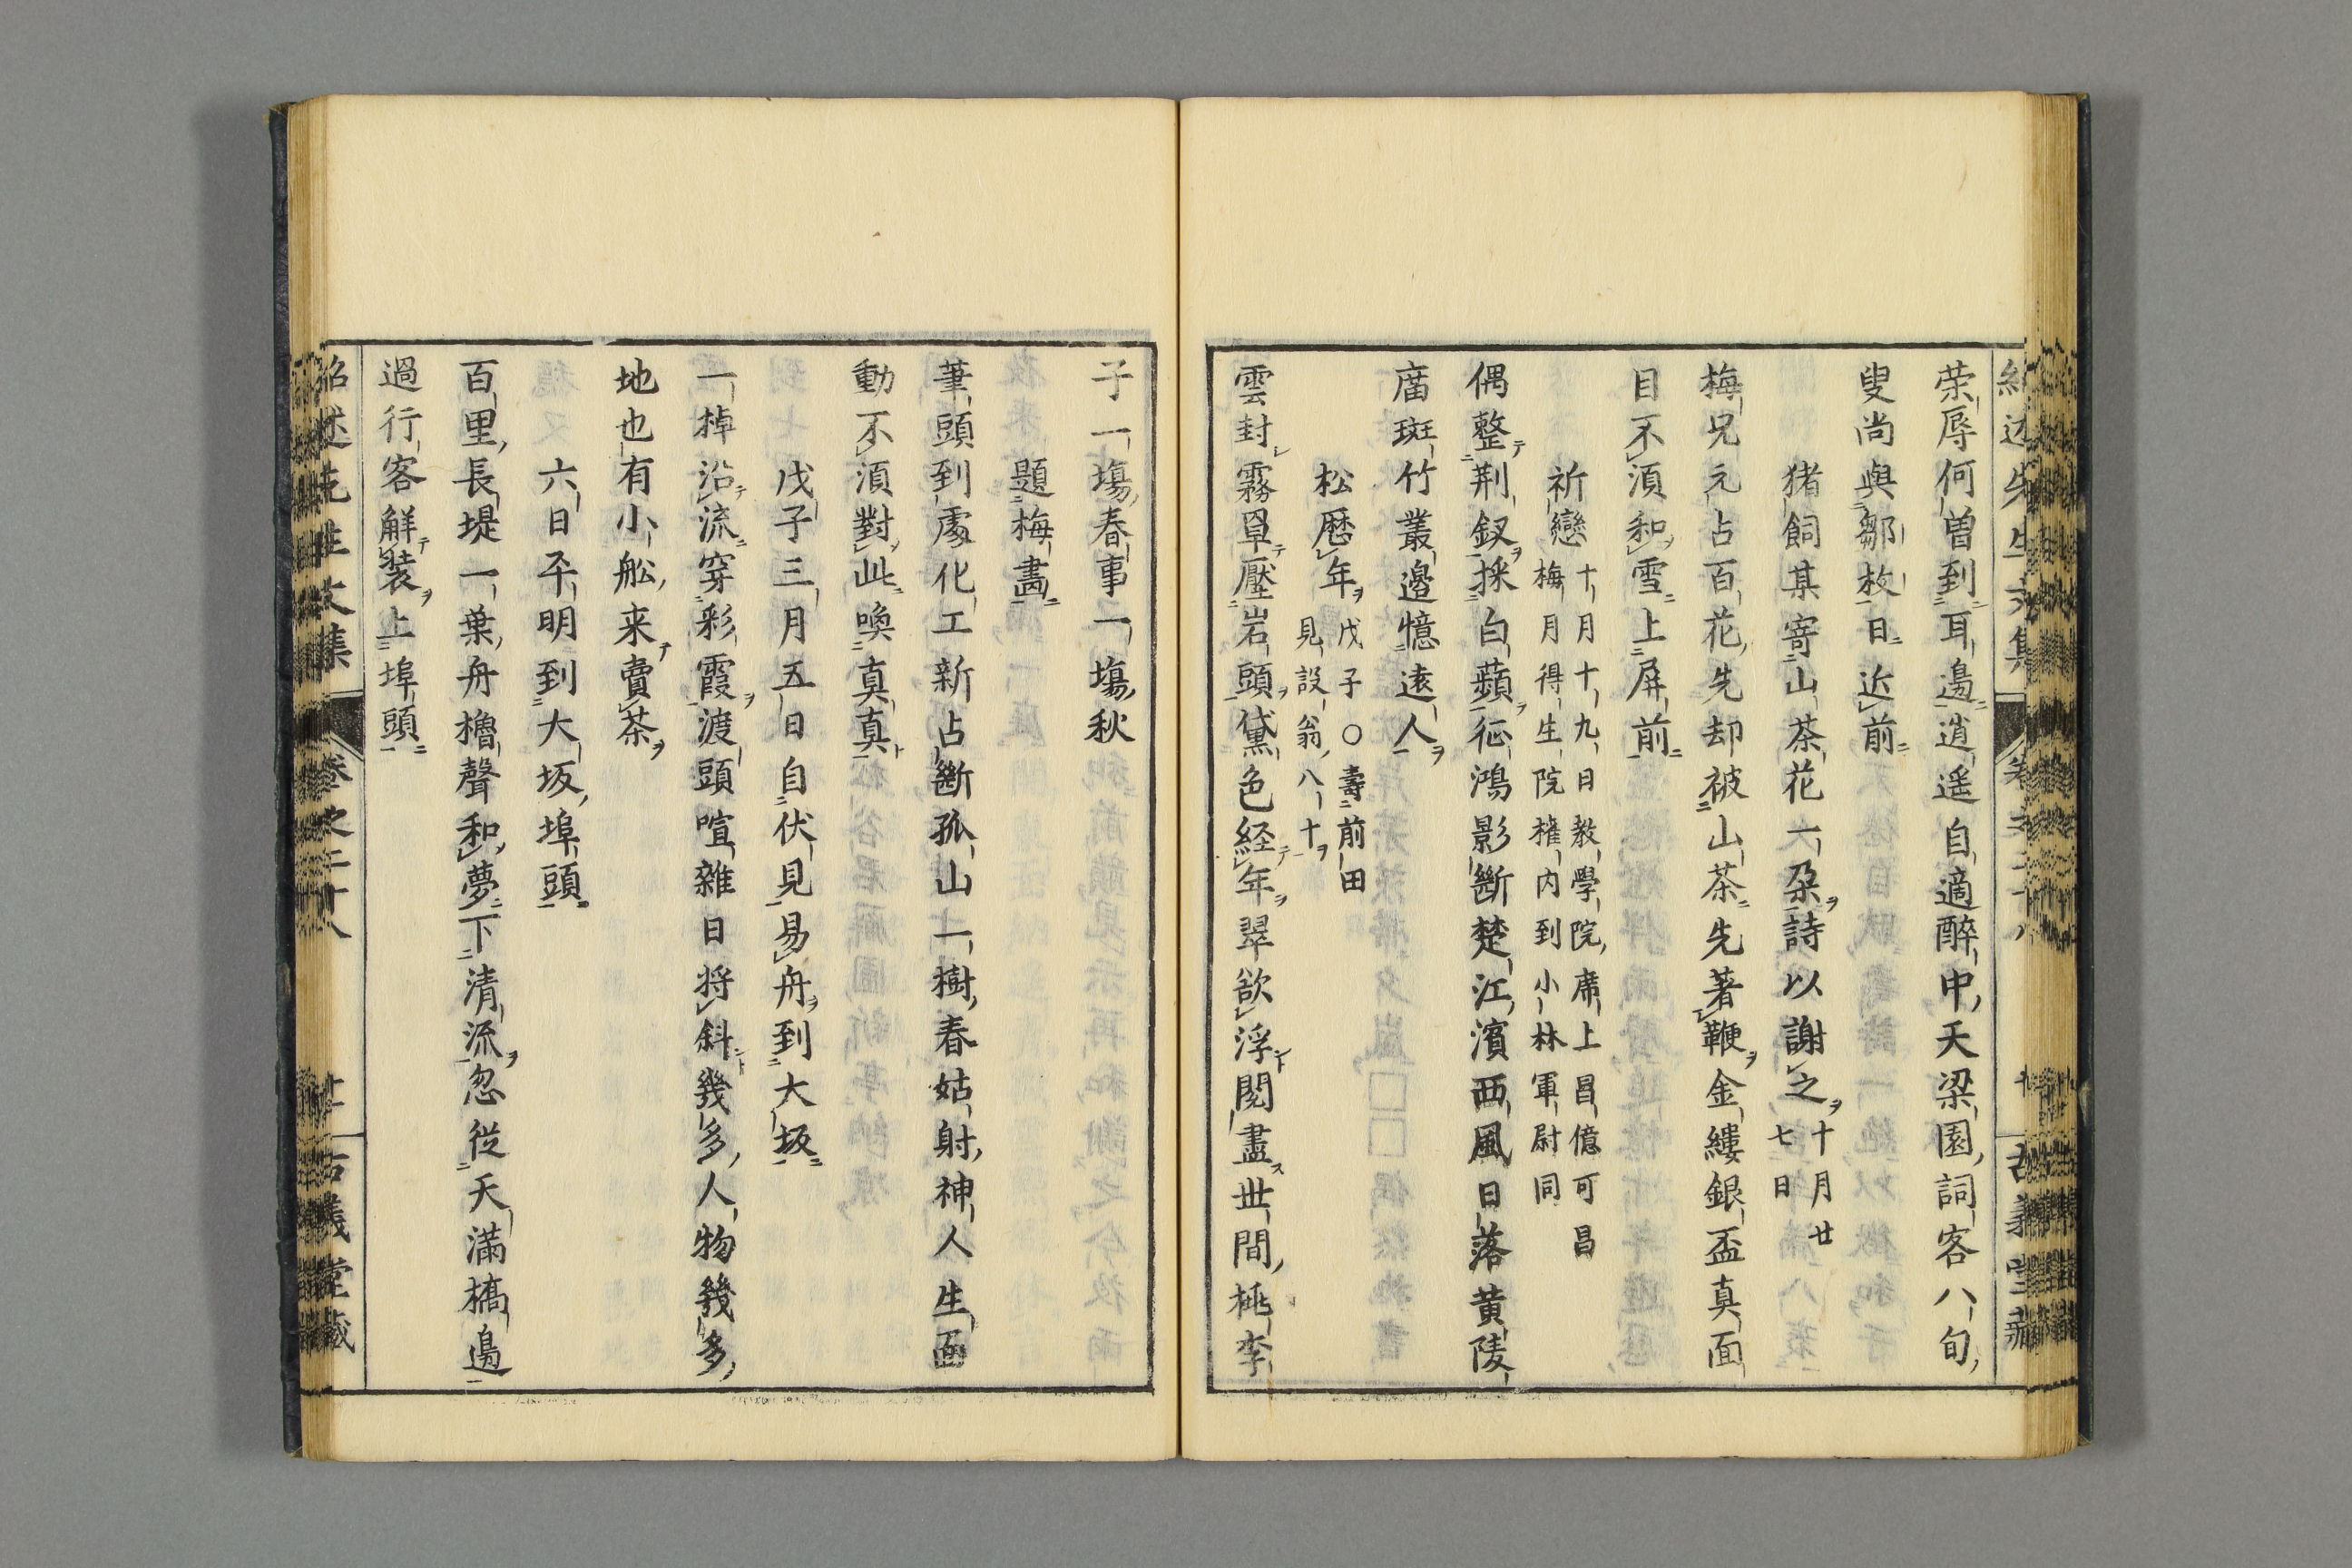 榮辱何曽到耳邉逍遥自適醉中天梁園詞客八旬
叟尚與鄒枚日近前
猪飼其寄山茶花一朶詩以謝之十月廿
七日
梅兄元占百花先却被山茶先著鞭金縷銀盃真面
目不湏和雪上屏前
祈戀十月十九日教學院席上昌億可昌
梅月得生院権内到小林軍尉同
偶整荆釵採白蘋征鴻影断楚江濱西風日落黄陵
庿斑竹叢邉憶遠人
松歴年戊子〇壽前田
見設翁八十
雲封霧罩壓岩頭黛色経年翠欲浮閲盡世間桃李
子一塲春事一塲秋
題梅畵
筆頭到處化工新占斷孤山十一樹春姑射神人生面
動不湏對此喚真真
戊子三月五日自伏見易舟到大坂
一棹沿流穿彩霞渡頭喧雜日将斜幾多人物幾多
地也有小舩来賣茶
六日平明到大坂埠頭
百里長堤一葉舟櫓聲和夢下清流忽従天満橋邉
過行客解装上埠頭
紹述先生文集 卷之二十八 十一 古義堂藏